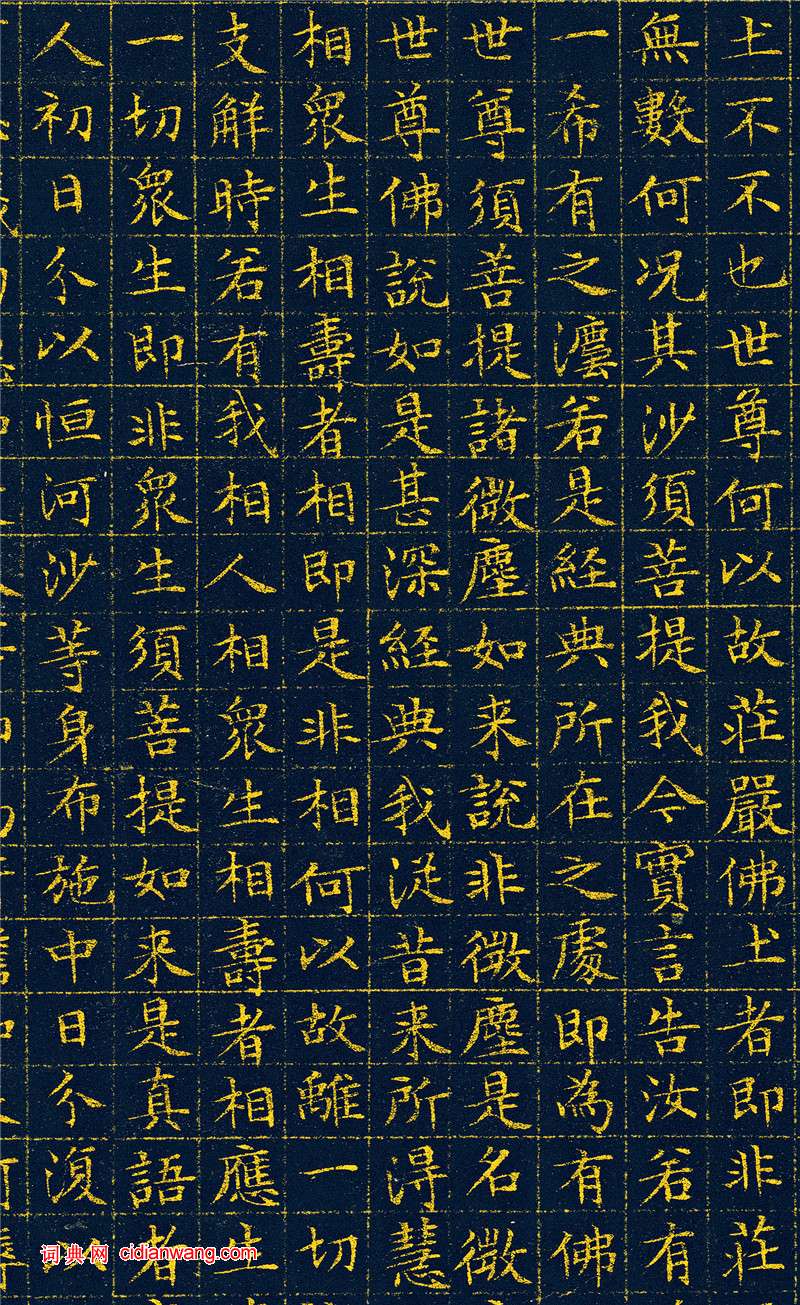 土不不也世尊何以故莊嚴佛土者即非莊
無數何况其沙須菩提我今實言告汝若有
一希有之法若是經典所在之處即為有佛
世尊須菩提諸微塵如来說非微塵是名微
世尊佛說如是甚深經典我從昔来所得慧
相衆生相壽者相即是非相何以故離一切
支解時若有我相人相衆生相壽者相應生
一切衆生即非衆生須菩提如来是真語者
人初日分以恒河沙等身布施中日分復以
词典网 cidianwang.com